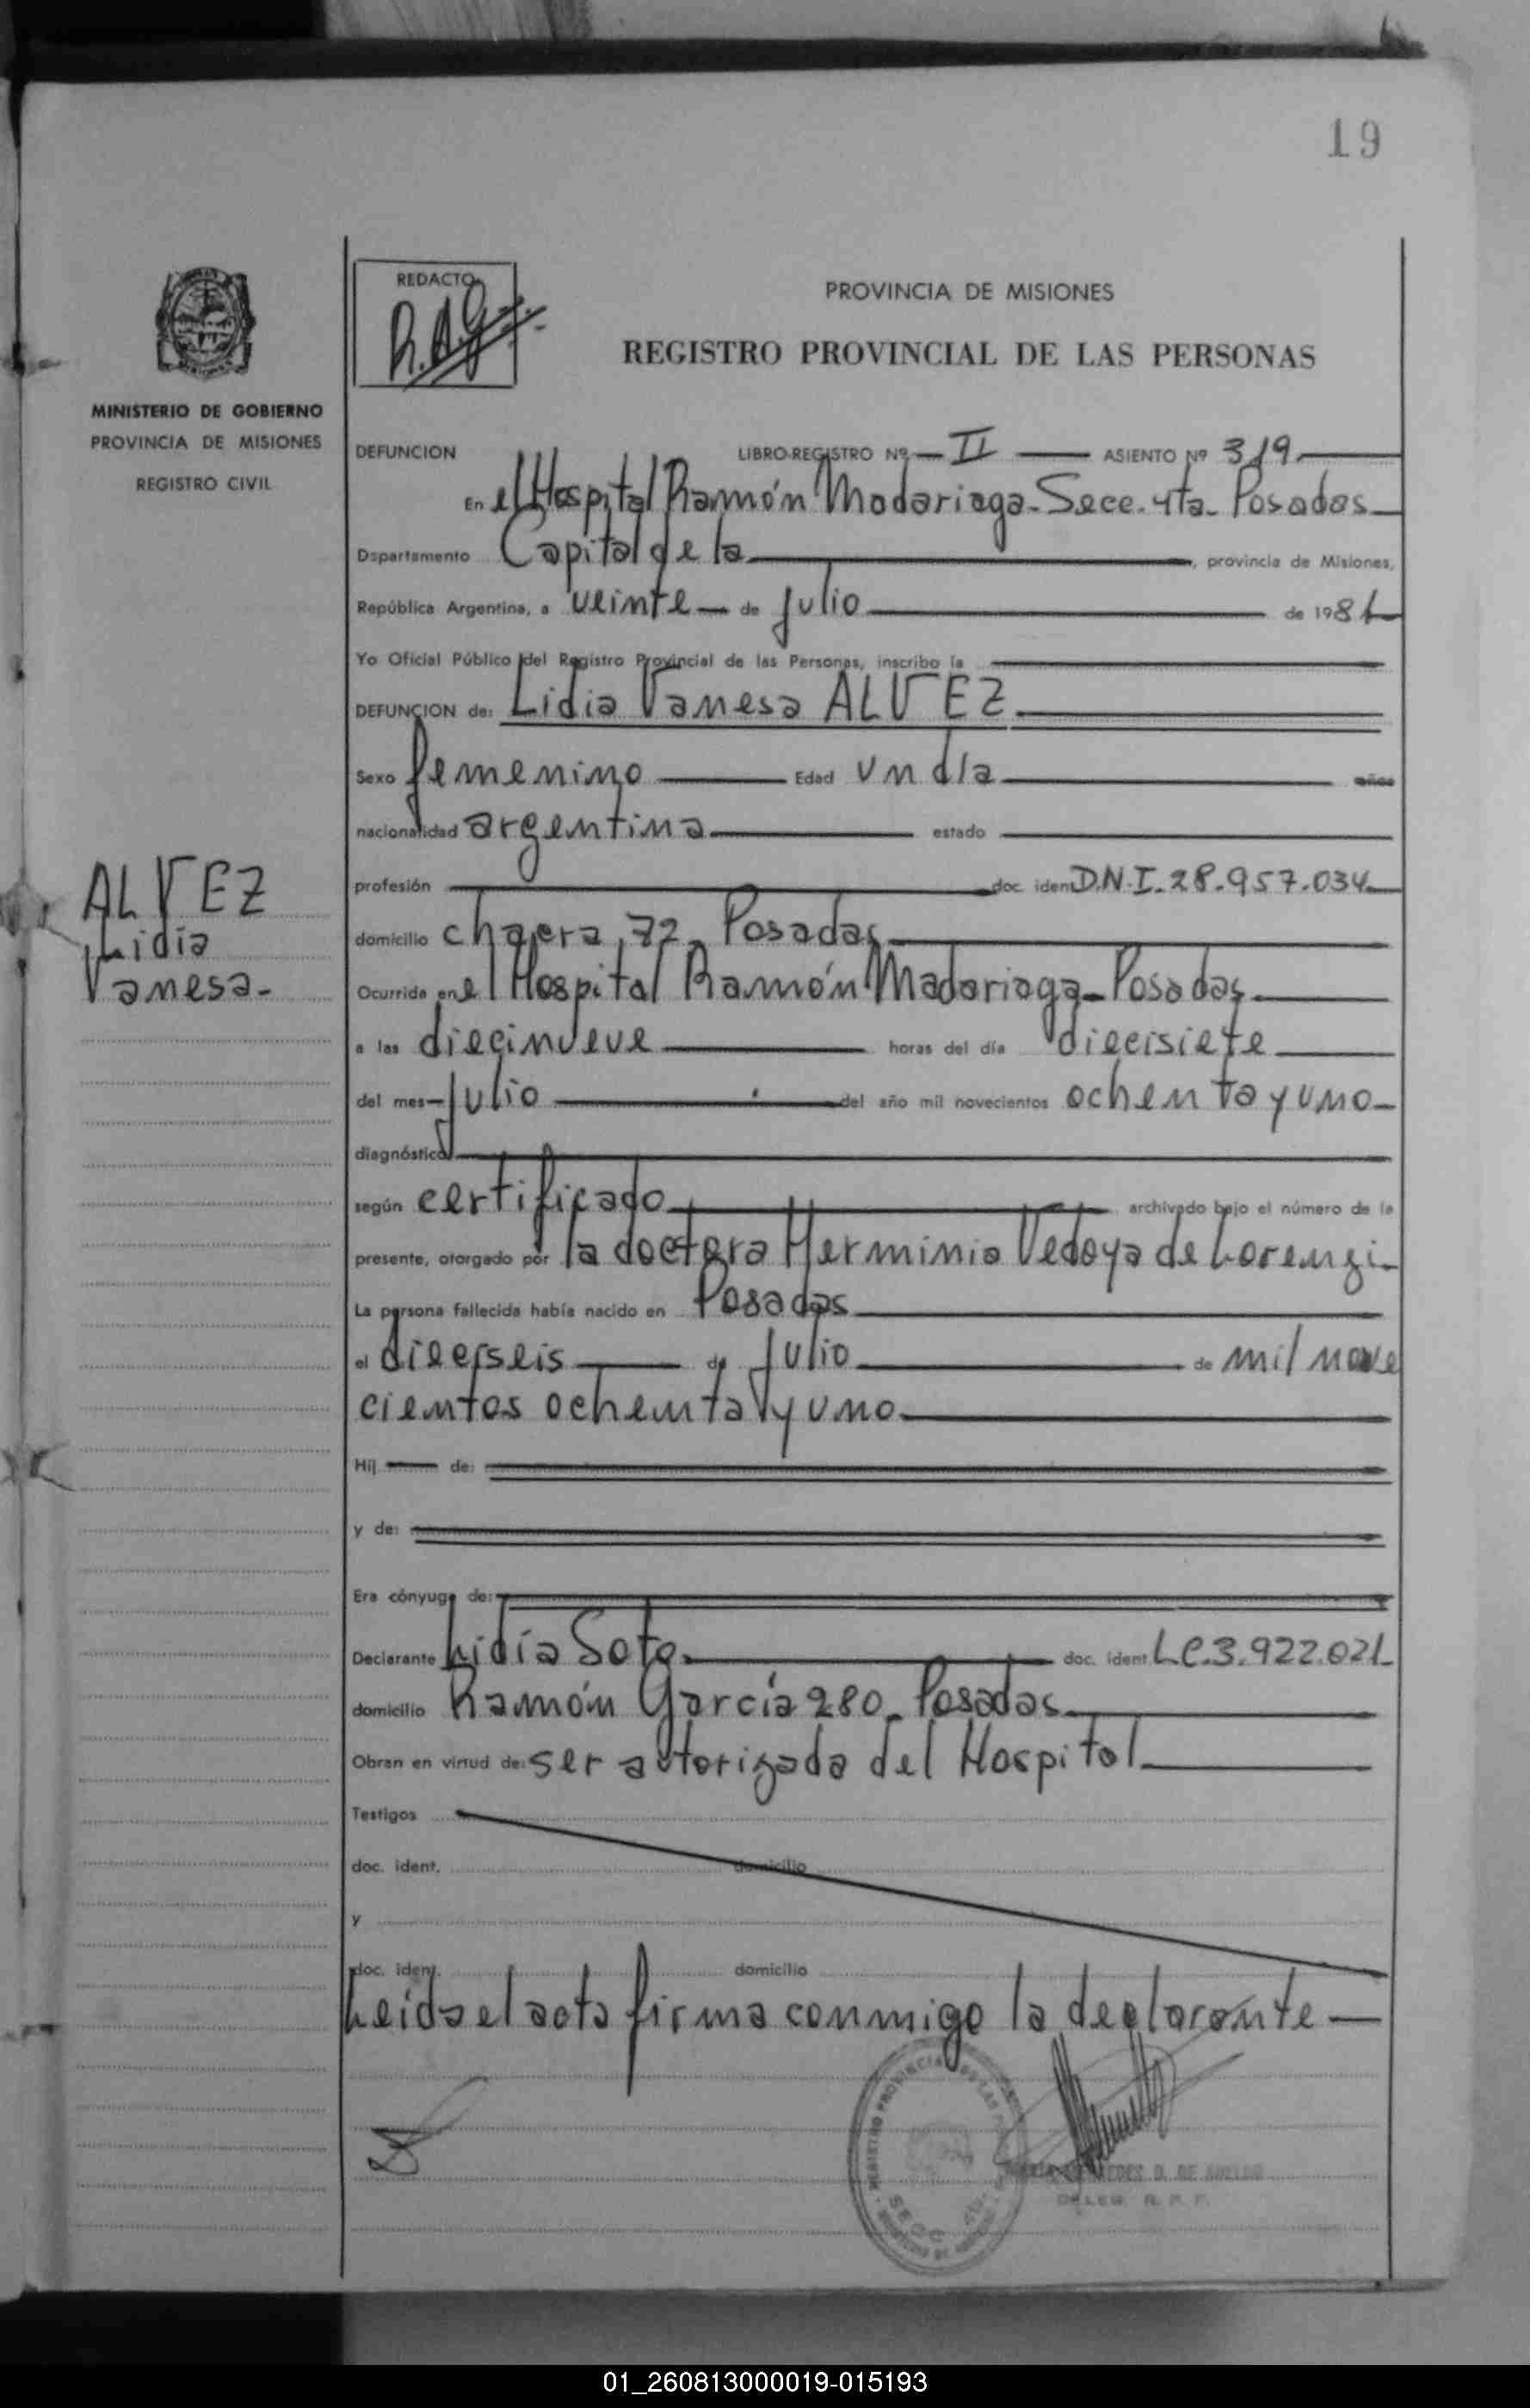 19
REDACTO
R.A.G.
PROVINCIA DE MISIONES
REGISTRO PROVINCIAL DE LAS PERSONAS
MINISTERIO DE GOBIERNO
PROVINCIA DE MISIONES
REGISTRO CIVIL
DEFUNCION LIBRO-REGISTRO Nº II ASIENTO Nº 319
En el Hospital Ramón Madariaga - Secc. 4ta - Posadas
Departamento Capital de la, provincia de Misiones,
República Argentina, a veinte de Julio de 1981
Yo Oficial Público del Registro Provincial de las Personas, inscribo la
DEFUNCION de: Lidia Vanesa ALVEZ
Sexo femenino Edad un día años
nacionalidad argentina estado
ALVEZ
Lidia
Vanesa-
profesión doc. ident D.N.I. 28.957.034
domicilio chacra 72 - Posadas
Ocurrida en el Hospital Ramón Madariaga - Posadas
a las diecinueve horas del día diecisiete
del mes Julio del año mil novecientos ochenta y uno
diagnóstico
según certificado archivado bajo el número de la
presente, otorgado por la doctora Herminia Vedoya de Lorenzi
La persona fallecida había nacido en Posadas
el dieciseis de Julio de mil nove
cientos ochenta y uno
Hij de:
y de:
Era cónyuge de:
Declarante Lidia Soto doc. ident. LC. 3.922.021
domicilio Ramón García 280 - Posadas
Obran en virtud de: ser autorizada del Hospital
Testigos
doc. ident. domicilio
y
doc. ident. domicilio
Leida el acta firma conmigo la declarante
REGISTRO PROVINCIAL DE LAS
SECC. 4ta.
D. DE
DELEG. R. P. P.
01_260813000019-015193